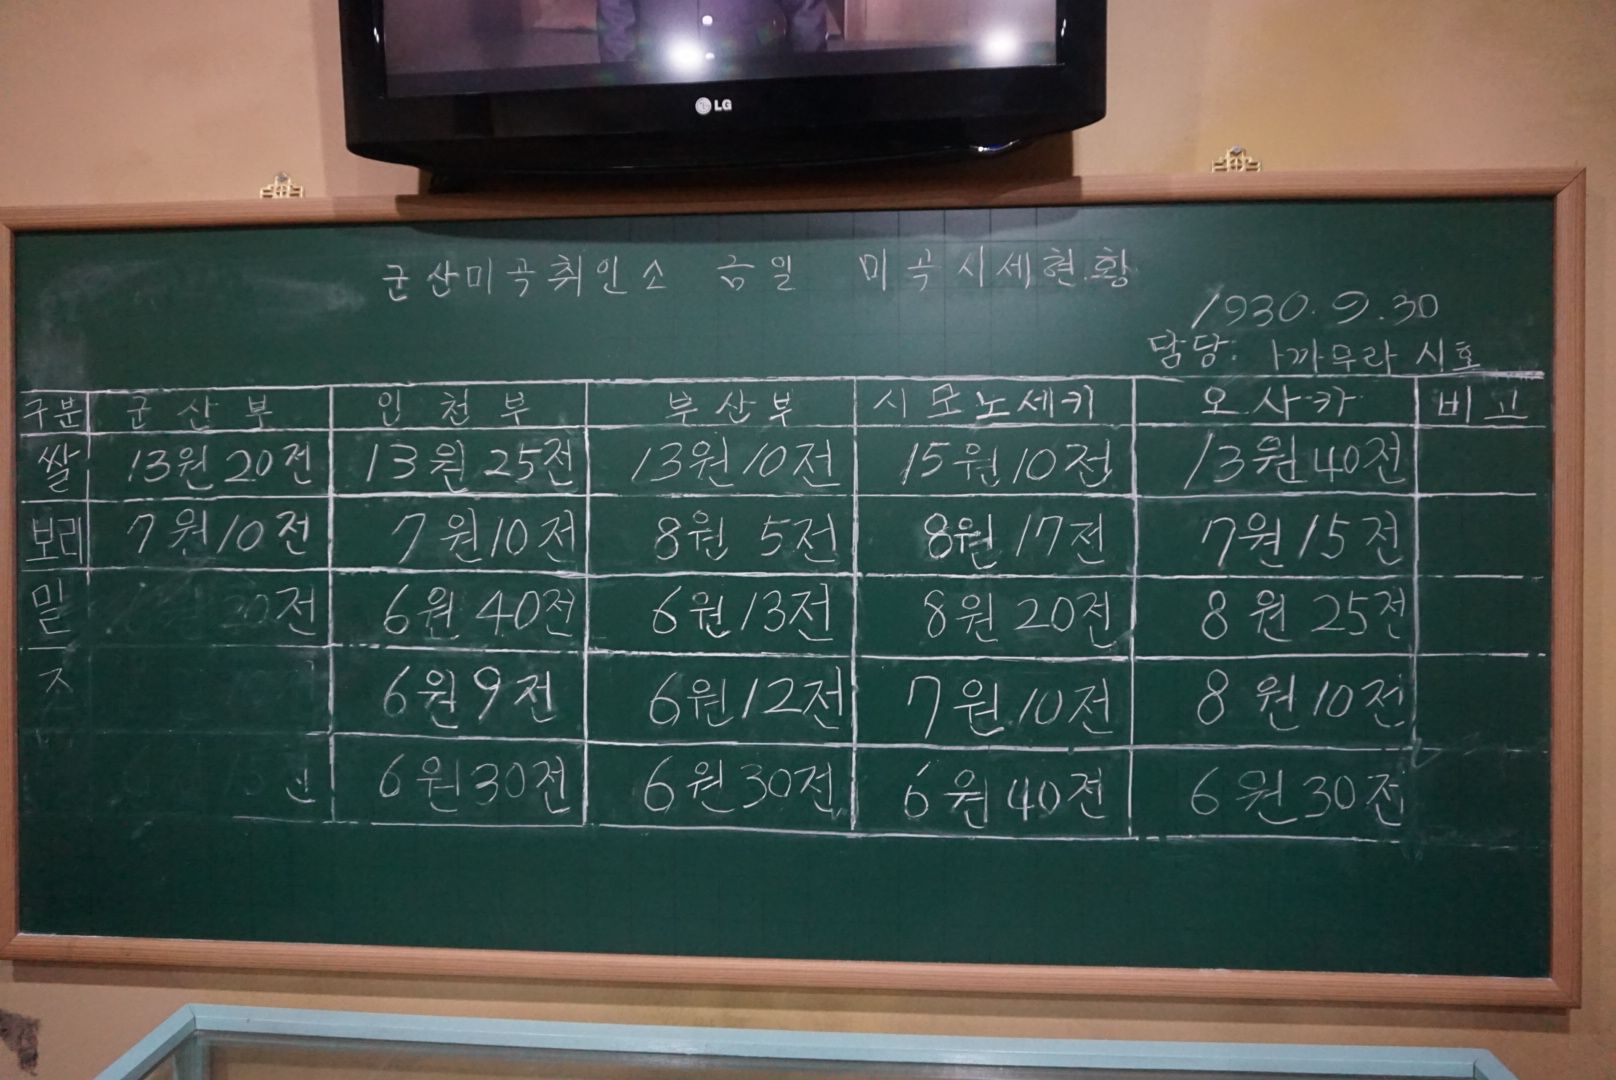 LG
군산미곡취인소 금일 미곡시세현황
1930.9.30
담당: 시호
구분 군산부 인천부 부산부 시모노세키 오사카 비고
쌀 13원20전 13원25전 13원10전 15원10전 13원40전
보리 7원10전 7원10전 8원5전 8원17전 7원15전
밀 전 6원40전 6원13전 8원20전 8원25전
6원9전 6원12전 7원10전 8원10전
6원30전 6원30전 6원40전 6원30전